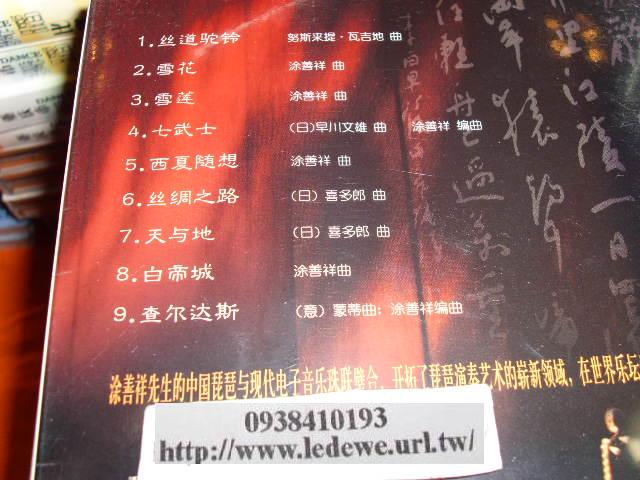 1.丝道驼铃 努斯来提·瓦吉地 曲
2.雪花 涂善祥 曲
3.雪莲 涂善祥 曲
4.七武士 (日)早川文雄 曲 涂善祥 编曲
5.西夏随想 涂善祥 曲
6.丝绸之路 (日)喜多郎 曲
7.天与地 (日)喜多郎 曲
8.白帝城 涂善祥曲
9.查尔达斯 (意)蒙蒂曲;涂善祥编曲
涂善祥先生的中国琵琶与现代电子音乐珠联璧合,开拓了琵琶演奏艺术的崭新领域,在世界乐坛
0938410193
http://www.ledewe.url.tw/